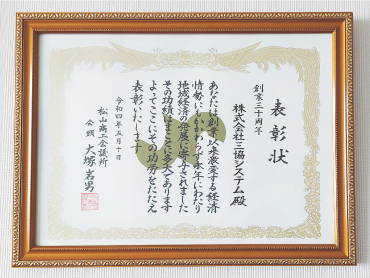 表彰状
創業三十周年
株式会社三協システム殿
あなたは創業以来激変する経済
情勢にもかかわらず永年にわたり
地域経済の発展に寄与されました
その功績はまことに多大であります
よってここにその功労をたたえ
表彰いたします
令和四年五月十日
松山商工会議所
会頭 大塚岩男